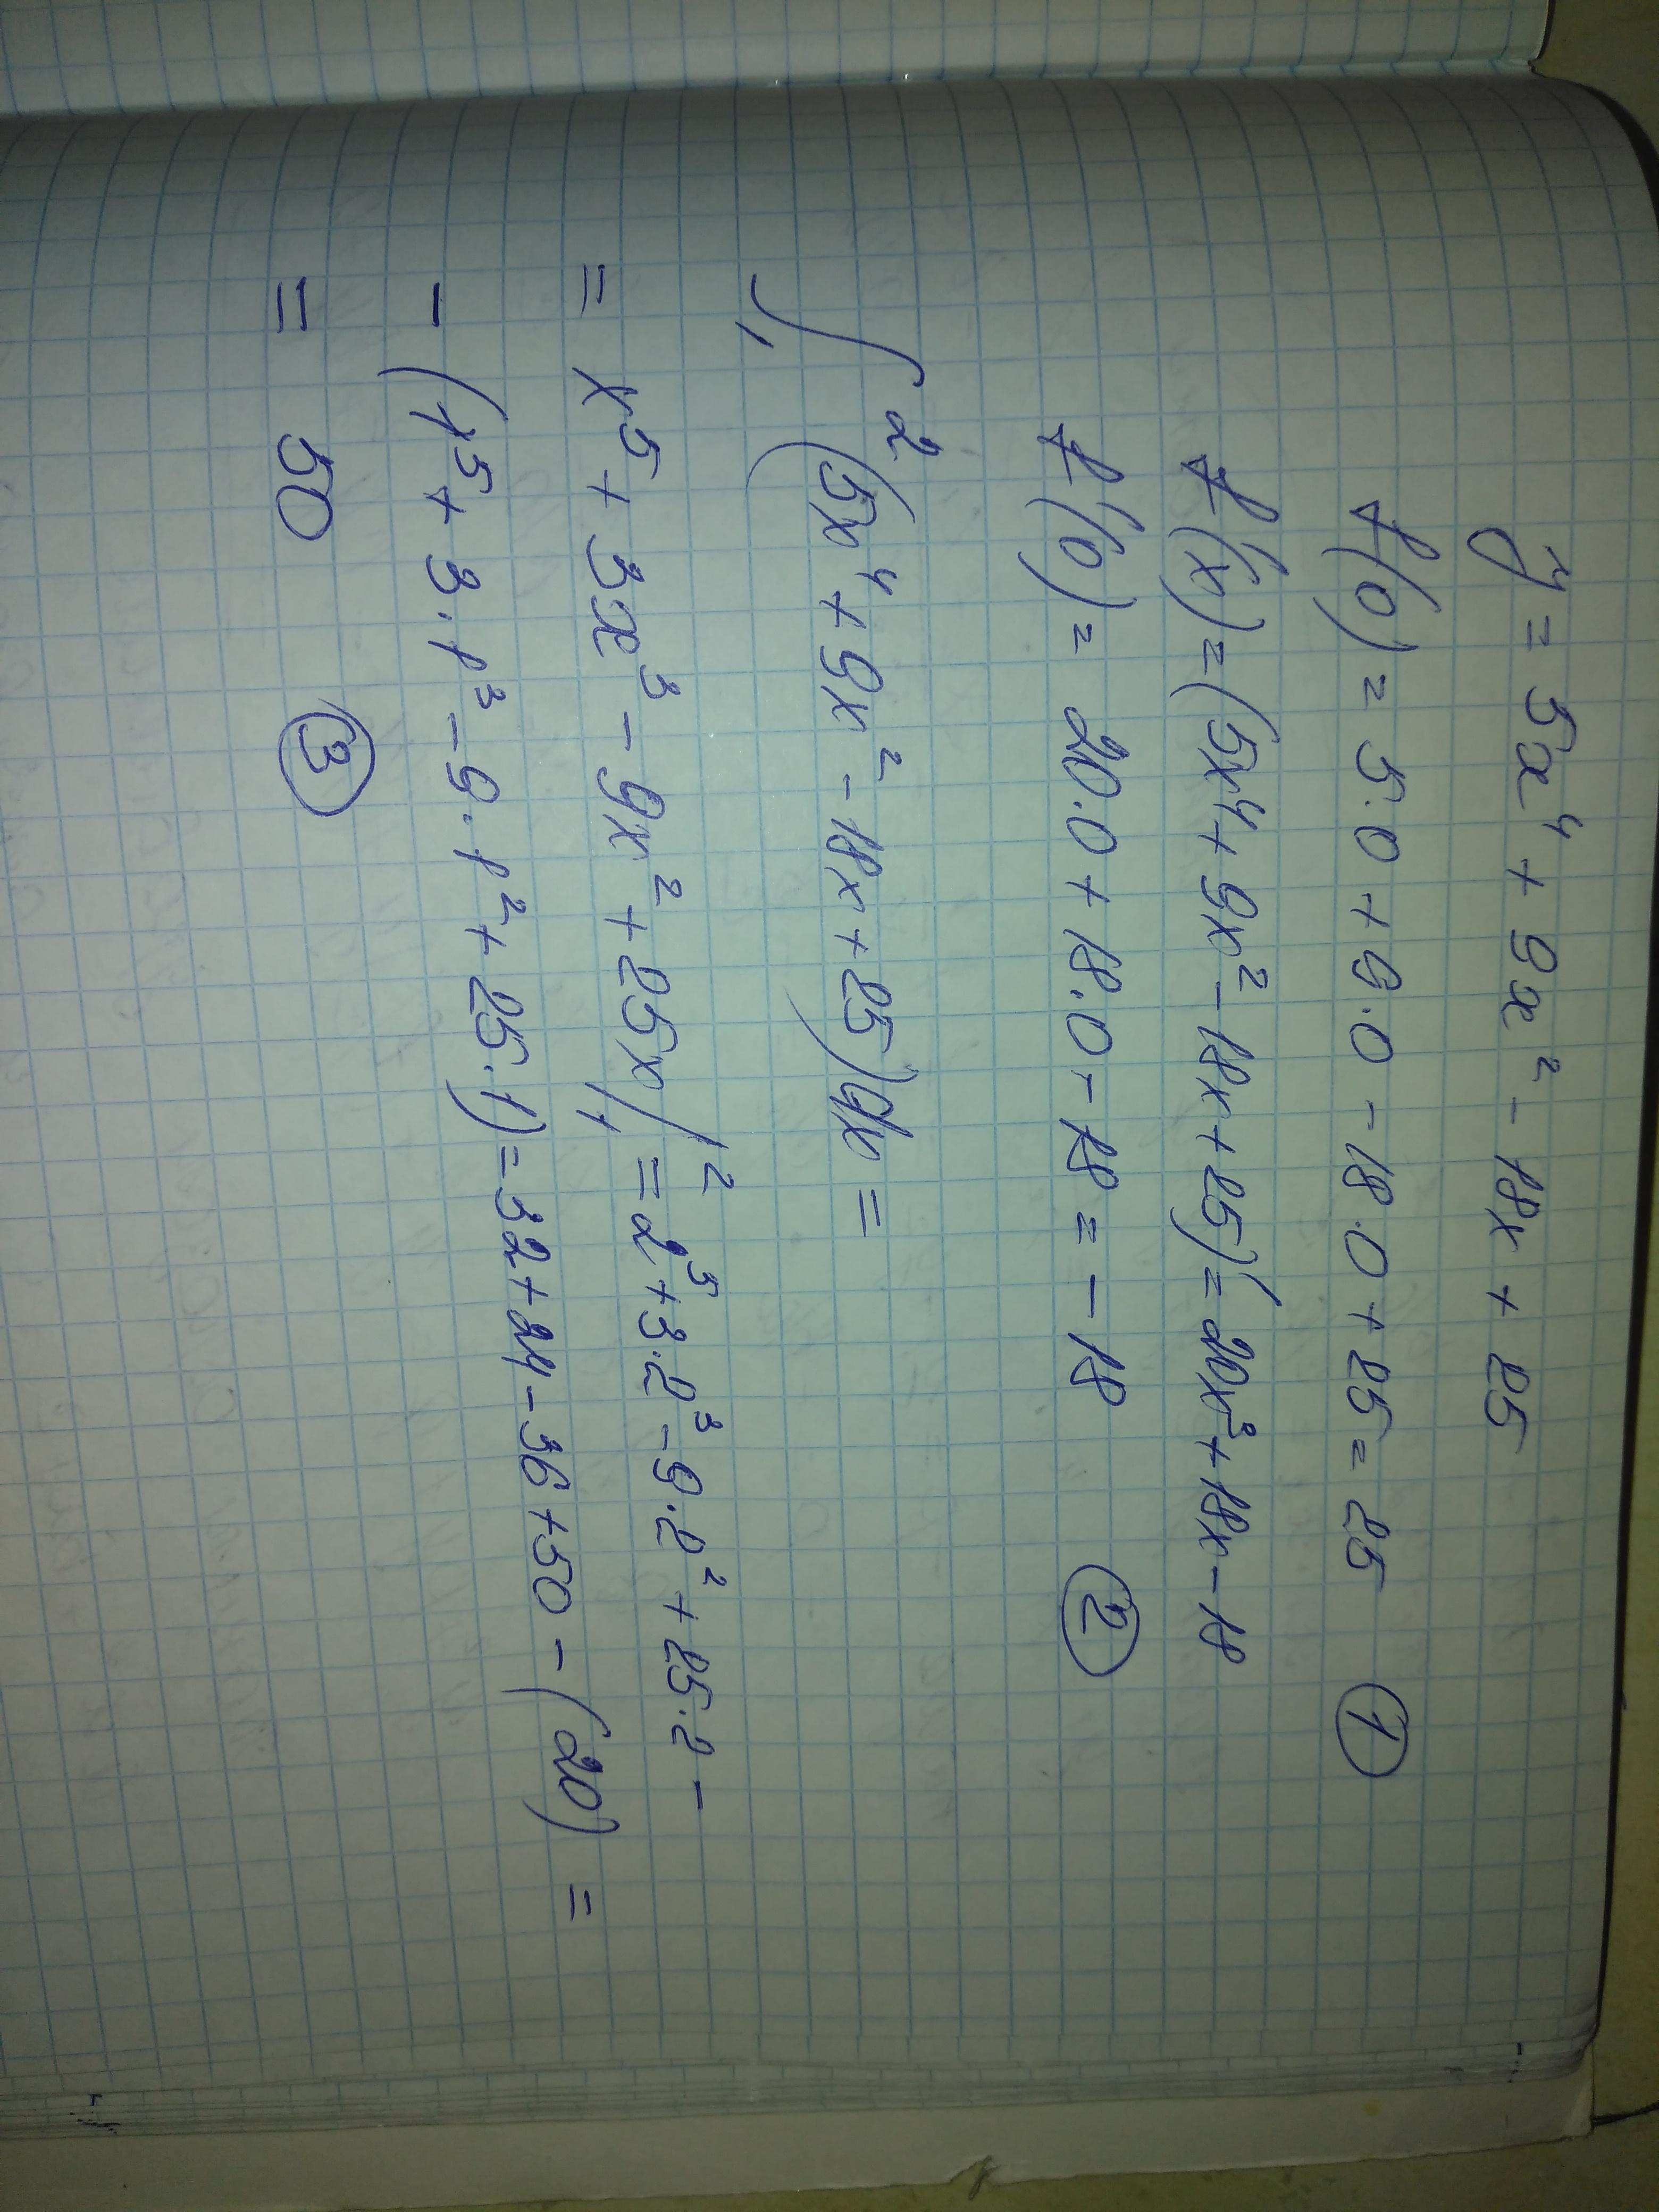 y = 5x⁴ + 9x² - 18x + 25
f(0) = 5·0 + 9·0 - 18·0 + 25 = 25 ①
f'(x) = (5x⁴ + 9x² - 18x + 25)' = 20x³ + 18x - 18
f'(0) = 20·0 + 18·0 - 18 = - 18 ②
∫₁² (5x⁴ + 9x² - 18x + 25)dx =
= x⁵ + 3x³ - 9x² + 25x |₁² = 2⁵ + 3·2³ - 9·2² + 25·2 -
- (1⁵ + 3·1³ - 9·1² + 25·1) = 32 + 24 - 36 + 50 - (20) =
= 50 ③